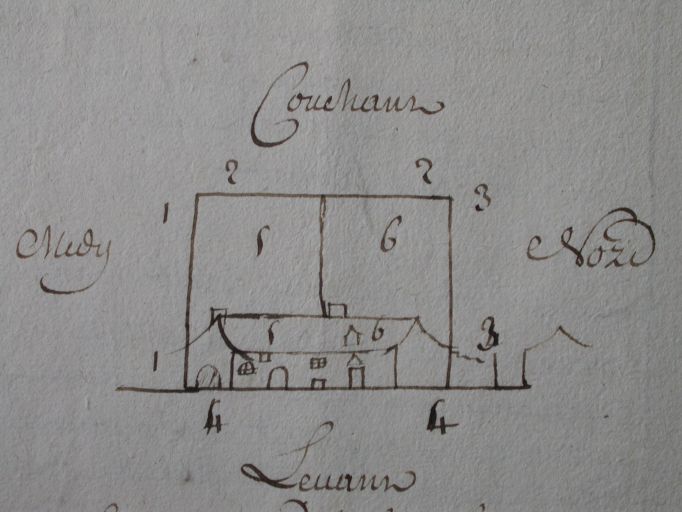 Couchant
2 2
1 3
Midy 5 6 Nord
5 6 3
1
4 4
Levant